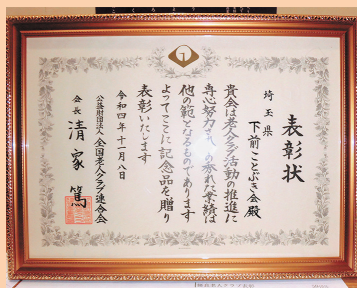 表彰状
埼玉県
下前ことぶき会殿
貴会は老人クラブ活動の推進に
専心努力され その秀れた業績は
他の範となるものであります
よってここに記念品を贈り
表彰いたします
令和四年十一月八日
公益財団法人 全国老人クラブ連合会
会長 清家 篤